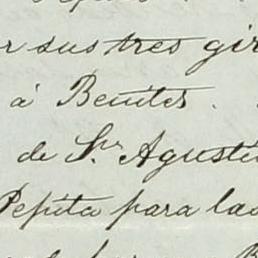 r sus tres gir
á Benites.
de Sr. Agustin
Pepita para las